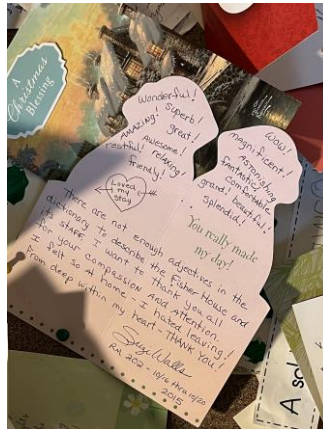 A
Christmas
Blessing
Wonderful!
Superb!
AMAZING!
great!
Awesome!
restful!
relaxing!
friendly!
Loved
my
stay
WOW!
magnificent!
Astonishing
fantastic!
comfortable
grand!
beautiful!
splendid!
You really made
my day!
There are not enough adjectives in the
dictionary to describe the Fisher House and
its staff. I want to thank you all
for your compassion And Attention.
I felt so At home - I hated leaving!
From deep within my heart - THANK YOU!
Suzi Walls
Rm 202 - 10/16 thru 10/20
2015
A sol